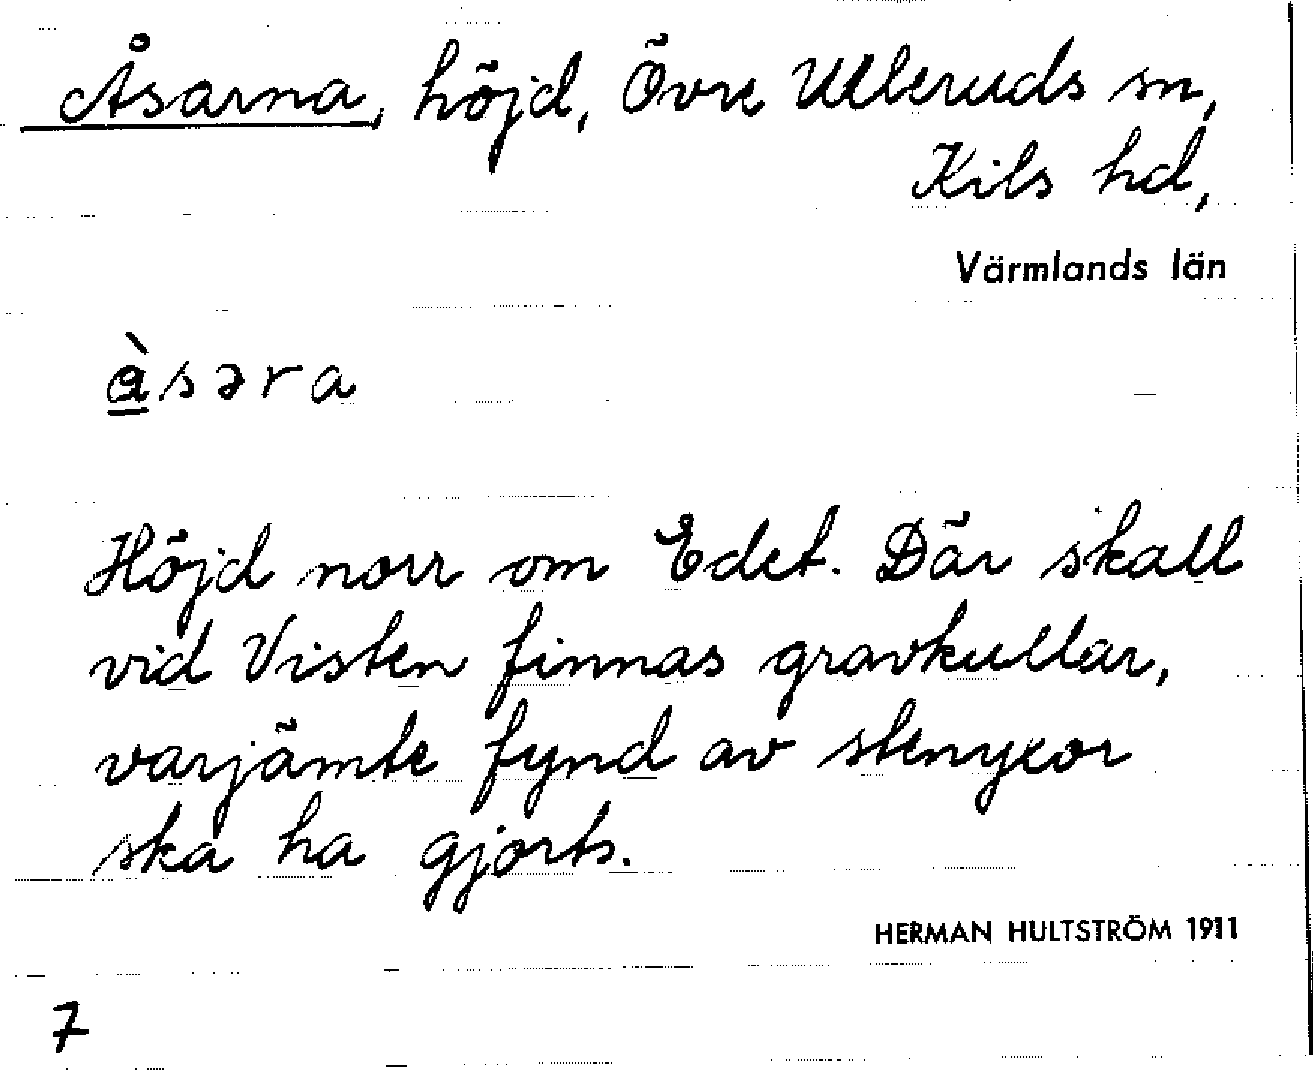 Åsarna, höjd, Övre Ulleruds sn,
Kils hd,
Värmlands län
à̱səra
Höjd norr om Edet. Där skall
vid Visten finnas gravkullar,
varjämte fynd av stenyxor
ska ha gjorts.
HERMAN HULTSTRÖM 1911
7